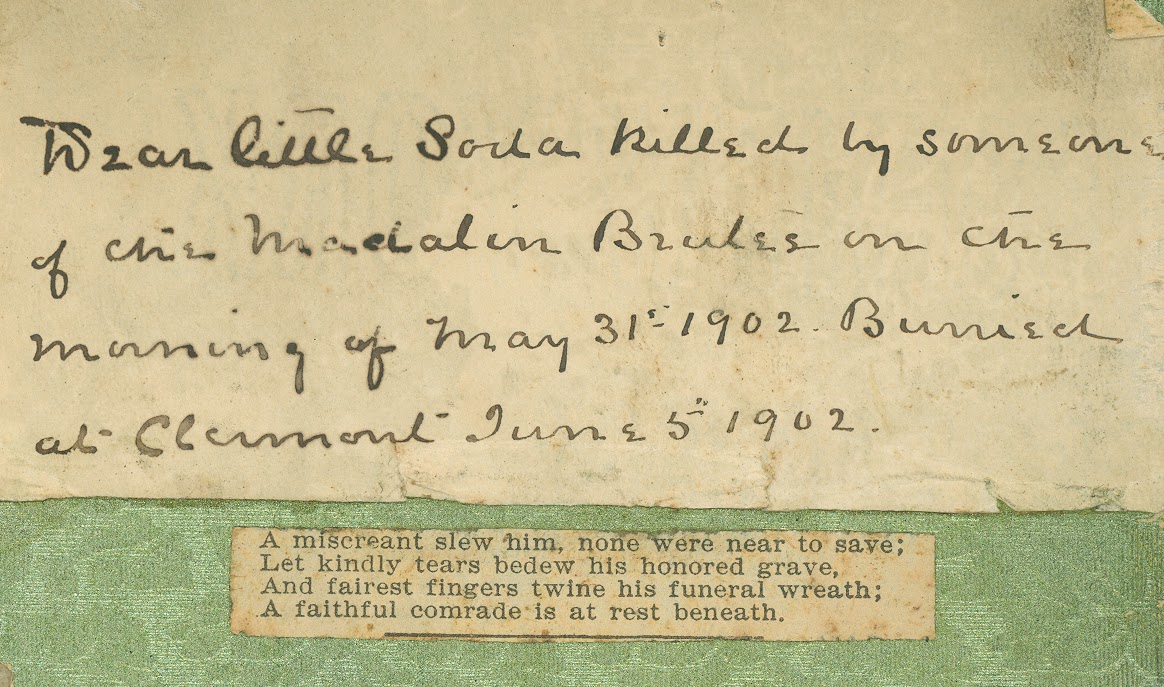 Dear little Soda killed by someone
of the Madalin Brutes on the
morning of May 31st 1902. Burried
at Clermont June 5th 1902.
A miscreant slew him, none were near to save;
Let kindly tears bedew his honored grave,
And fairest fingers twine his funeral wreath;
A faithful comrade is at rest beneath.